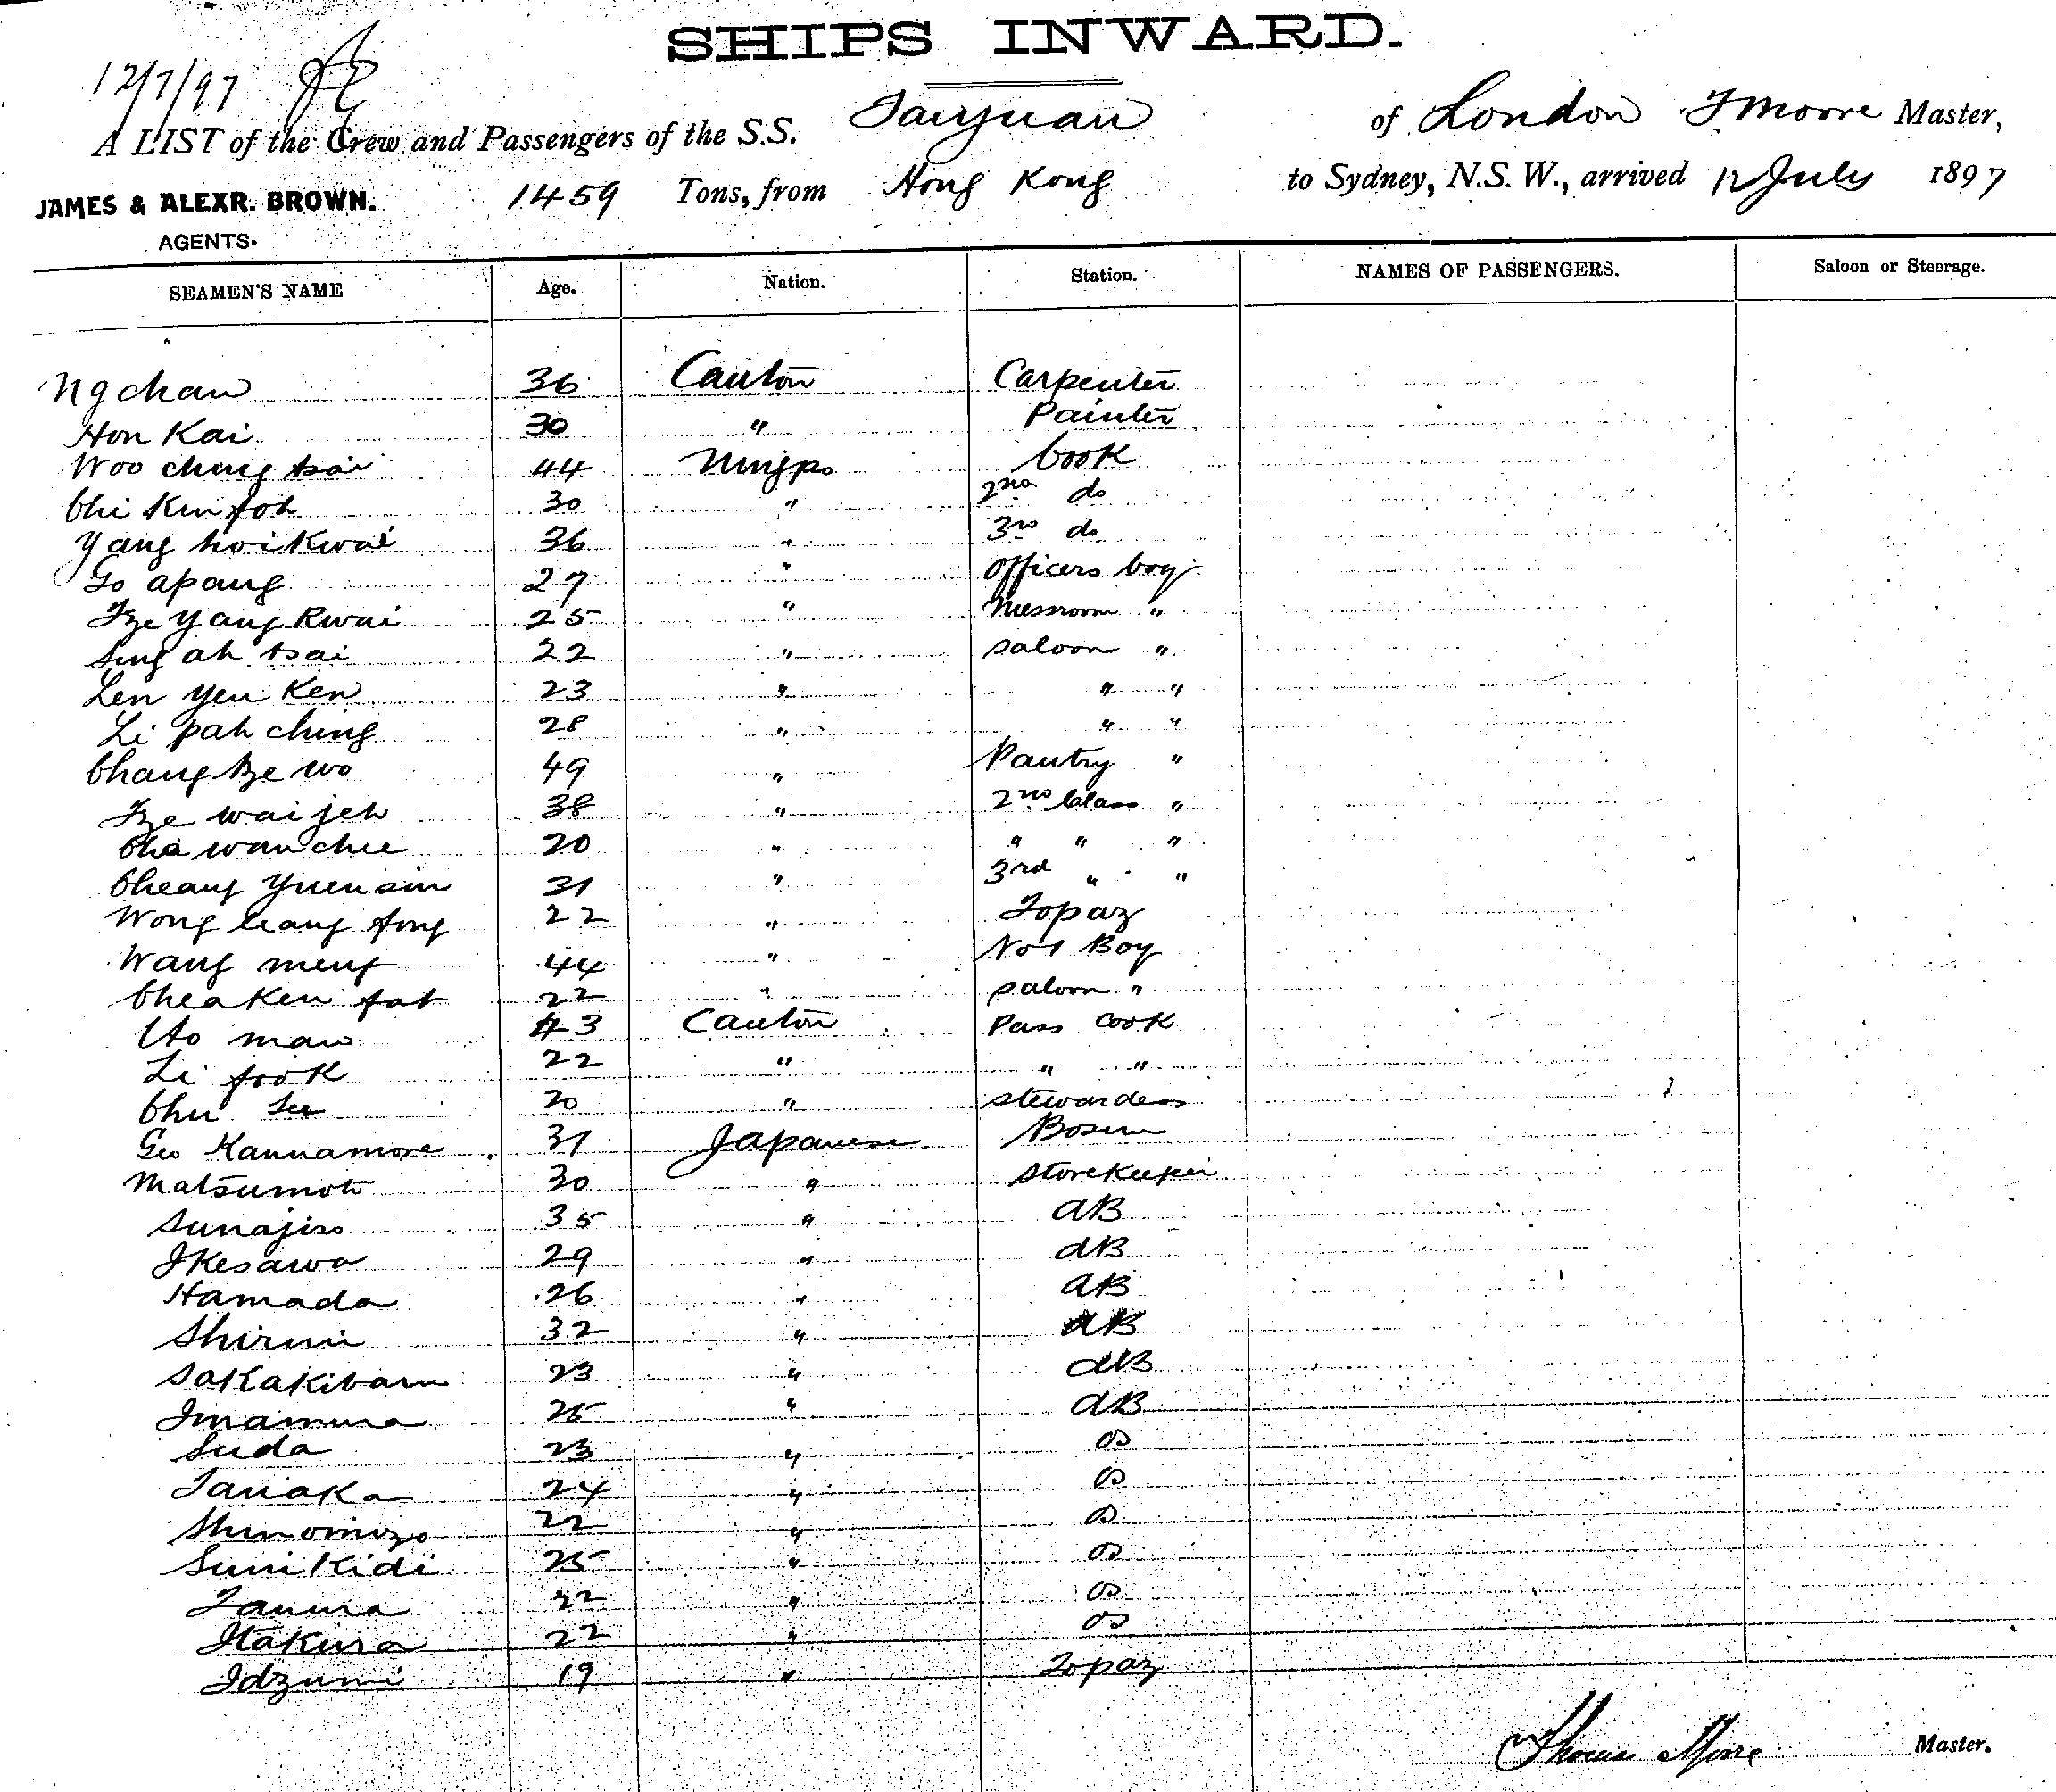 SHIPS INWARD.
12/7/97
A LIST of the Crew and Passengers of the S.S. Taiyuan of London T Moore Master,
JAMES & ALEXR. BROWN. 1459 Tons, from Hong Kong to Sydney, N.S.W., arrived 12 July 1897
AGENTS.
SEAMEN'S NAME Age. Nation. Station. NAMES OF PASSENGERS. Saloon or Steerage.
Ng chan 36 Canton Carpenter
Hon Kai 30 " Painter
Woo chong tsai 44 Ningpo Cook
Chi Kin foh 30 " 2nd do
Yang hoi Kwai 36 " 3rd do
Go apang 27 " officers boy
Tze Yang Kwai 25 " Messroom "
Sing ah tsai 22 " saloon "
Len Yeu Ken 23 " " "
Li pah ching 28 " " "
Chang tze wo 49 " Pantry "
Tze wai jeh 38 " 2nd Class "
Cha wan chee 20 " " " "
Cheang Yuen sin 31 " 3rd " "
Wong leang fong 22 " Topaz
Wang meng 44 " No 1 Boy
Chea Ken fat 22 " saloon "
Ho man 43 Canton Pass Cook
Li fook 22 " " "
Chu See 20 " stewardess
Geo Kannamore 31 Japanese Bosun
Matsumoto 30 " storekeeper
Sunajiro 35 " AB
Ikesawa 29 " AB
Hamada 26 " AB
Shirmi 32 " AB
Sakakibara 23 " AB
Imamura 25 " AB
Suda 23 " OS
Tanaka 24 " OS
Shinomizo 22 " OS
Sunikidi 25 " OS
Tamura 22 " OS
Itakura 22 " OS
Idzumi 19 " Topaz
Thomas Moore Master.